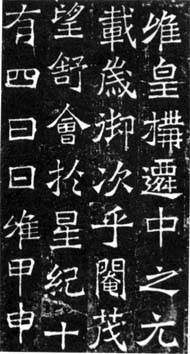 惟皇搆遷中之元
載歲御次乎閹茂
望舒會於星紀十
有四日日惟甲申